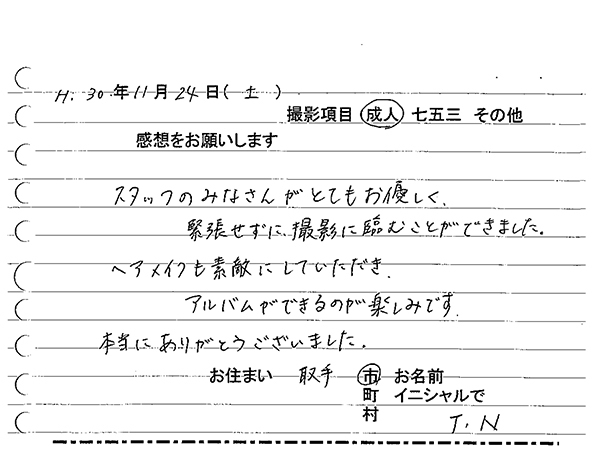 H. 30年11月24日(土)
撮影項目 成人 七五三 その他
感想をお願いします
スタッフのみなさんがとてもお優しく、
緊張せずに、撮影に臨むことができました。
ヘアメイクも素敵にしていただき、
アルバムができるのが楽しみです。
本当にありがとうございました。
お住まい 取手 市 お名前
町 イニシャルで
村 T.N